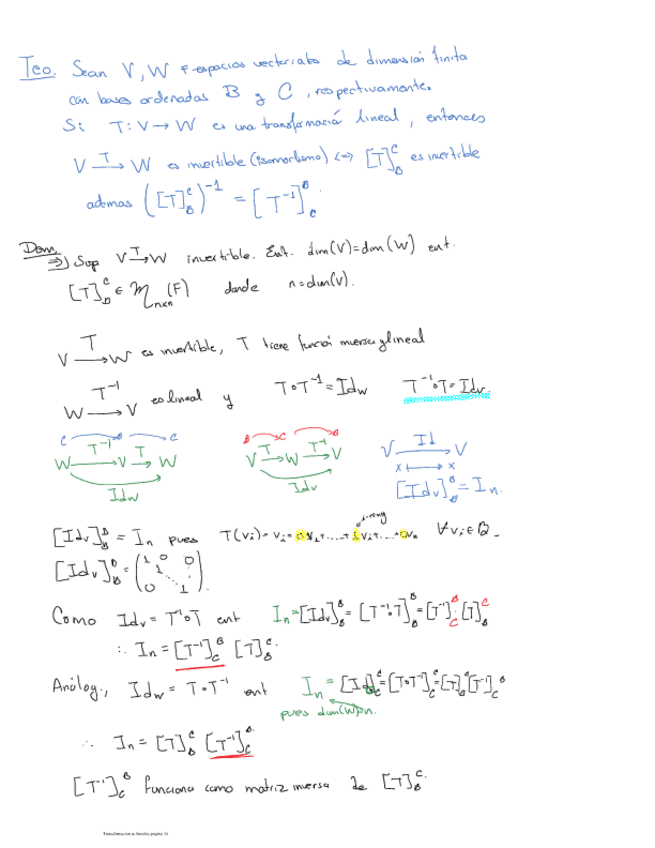 Teo. Sean V, W F-espacios vectoriales de dimensión finita
con bases ordenadas B y C, respectivamente.
Si T: V → W es una transformació lineal, entonces
V –T→ W es invertible (isomorfismo) <=> [T]_B^C es invertible
ademas ([T]_B^C)^{-1} = [T^{-1}]_C^B.
Dem.
⇒) Sup V –T→ W invertible. Ent. dim(V)=dim(W) ent.
[T]_B^C ∈ M_{n×n}(F) donde n=dim(V).
V –T→ W es invertible, T tiene función inversa y lineal
W –T^{-1}→ V es lineal y T∘T^{-1} = Id_W T^{-1}∘T = Id_V.
C B C
W –T^{-1}→ V –T→ W
Id_W
B C B
V –T→ W –T^{-1}→ V
Id_V
V –Id→ V
x ↦ x
[Id_V]_B^B = I_n.
[Id_V]_B^B = I_n pues T(v_i) = v_i = 0v_1+...+1v_i+...+0v_n ∀v_i∈B.
[Id_V]_B^B = (1 0 0 1 ⋱ 0 1).
Como Id_V = T^{-1}∘T ent I_n = [Id_V]_B^B = [T^{-1}∘T]_B^B = [T^{-1}]_C^B [T]_B^C
∴ I_n = [T^{-1}]_C^B [T]_B^C.
Análog., Id_W = T∘T^{-1} ent I_n = [Id]_C^C = [T∘T^{-1}]_C^C = [T]_B^C [T^{-1}]_C^B
pues dim(W)=n.
∴ I_n = [T]_B^C [T^{-1}]_C^B.
[T^{-1}]_C^B funciona como matriz inversa de [T]_B^C.